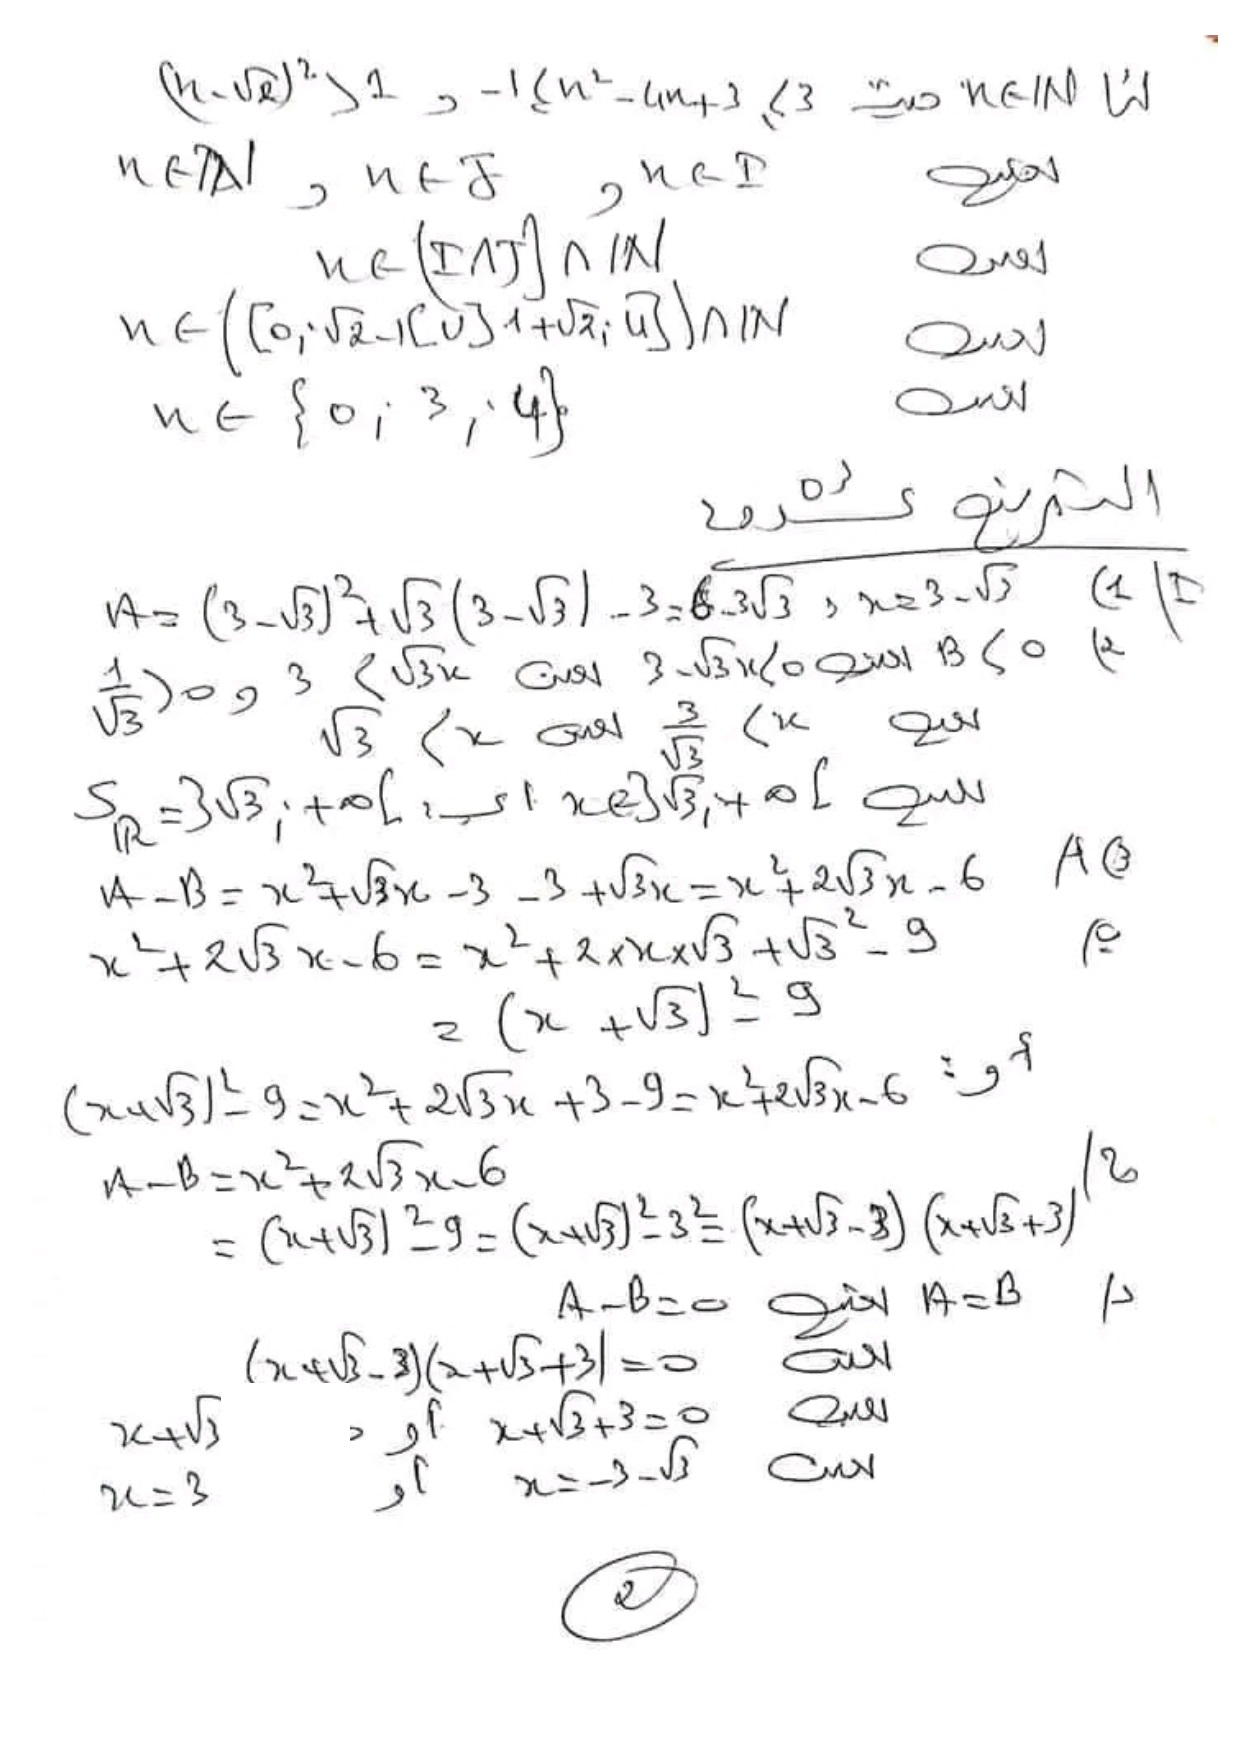 لنا n∈IN حيث -1≤n²-4n+3≤3 و (n-√2)²>1
يعني n∈I و n∈J و n∈IN
يعني n∈(I∩J)∩IN
يعني n∈([0;√2-1[∪]1+√2;4])∩IN
يعني n∈{0;3;4}
التمرين عدد 03
I/ 1) x=3-√3 , A=(3-√3)²+√3(3-√3)-3=6-3√3
2) B<0 يعني 3-√3x<0 يعني 3<√3x و 1/√3>0
يعني 3/√3<x يعني √3<x
يعني x∈]√3;+∞[ S_IR=]√3;+∞[
A-B=x²+√3x-3-3+√3x=x²+2√3x-6
x²+2√3x-6=x²+2×x×√3+√3²-9
=(x+√3)²-9
أو: (x+√3)²-9=x²+2√3x+3-9=x²+2√3x-6
A-B=x²+2√3x-6
=(x+√3)²-9=(x+√3)²-3²=(x+√3-3)(x+√3+3)
د/ A=B يعني A-B=0
يعني (x+√3-3)(x+√3+3)=0
يعني x+√3+3=0 أو x+√3
يعني x=-3-√3 أو x=3
2